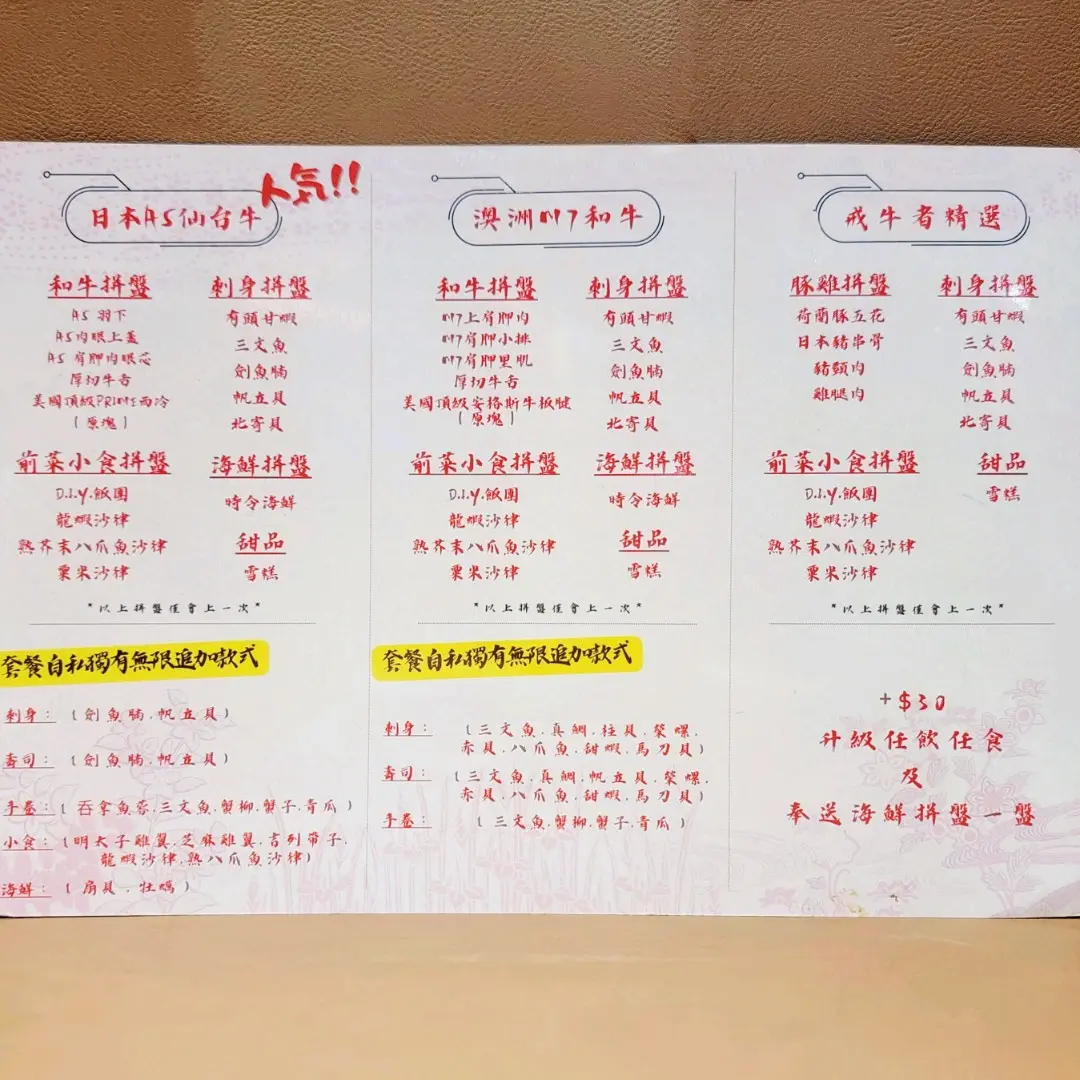 人気!!
日本A5仙台牛
和牛拼盤
A5 羽下
A5肉眼上蓋
A5 肩胛肉眼芯
厚切牛舌
美國頂級PRIME西冷
(原塊)
刺身拼盤
有頭甘蝦
三文魚
劍魚腩
帆立貝
北寄貝
前菜小食拼盤
D.I.Y.飯團
龍蝦沙律
熟芥末八爪魚沙律
粟米沙律
海鮮拼盤
時令海鮮
甜品
雪糕
*以上拼盤僅會上一次*
套餐自私獨有無限追加款式
刺身: (劍魚腩.帆立貝)
壽司: (劍魚腩.帆立貝)
手卷: (吞拿魚蓉.三文魚.蟹柳.蟹子.青瓜)
小食: (明太子雞翼.芝麻雞翼.吉列帶子.
龍蝦沙律.熟八爪魚沙律)
海鮮: (扇貝.牡蠣)
澳洲M7和牛
和牛拼盤
M7上肩胛肉
M7肩胛小排
M7肩胛里肌
厚切牛舌
美國頂級安格斯牛板腱
(原塊)
刺身拼盤
有頭甘蝦
三文魚
劍魚腩
帆立貝
北寄貝
前菜小食拼盤
D.I.Y.飯團
龍蝦沙律
熟芥末八爪魚沙律
粟米沙律
海鮮拼盤
時令海鮮
甜品
雪糕
*以上拼盤僅會上一次*
套餐自私獨有無限追加款式
刺身: (三文魚.真鯛.柱貝.螺.
赤貝.八爪魚.甜蝦.馬刀貝)
壽司: (三文魚.真鯛.帆立貝.螺.
赤貝.八爪魚.甜蝦.馬刀貝)
手卷: (三文魚.蟹柳.蟹子.青瓜)
戒牛者精選
豚雞拼盤
荷蘭豚五花
日本豬串骨
豬頸肉
雞腿肉
刺身拼盤
有頭甘蝦
三文魚
劍魚腩
帆立貝
北寄貝
前菜小食拼盤
D.I.Y.飯團
龍蝦沙律
熟芥末八爪魚沙律
粟米沙律
甜品
雪糕
*以上拼盤僅會上一次*
+$30
升級任飲任食
及
奉送海鮮拼盤一盤